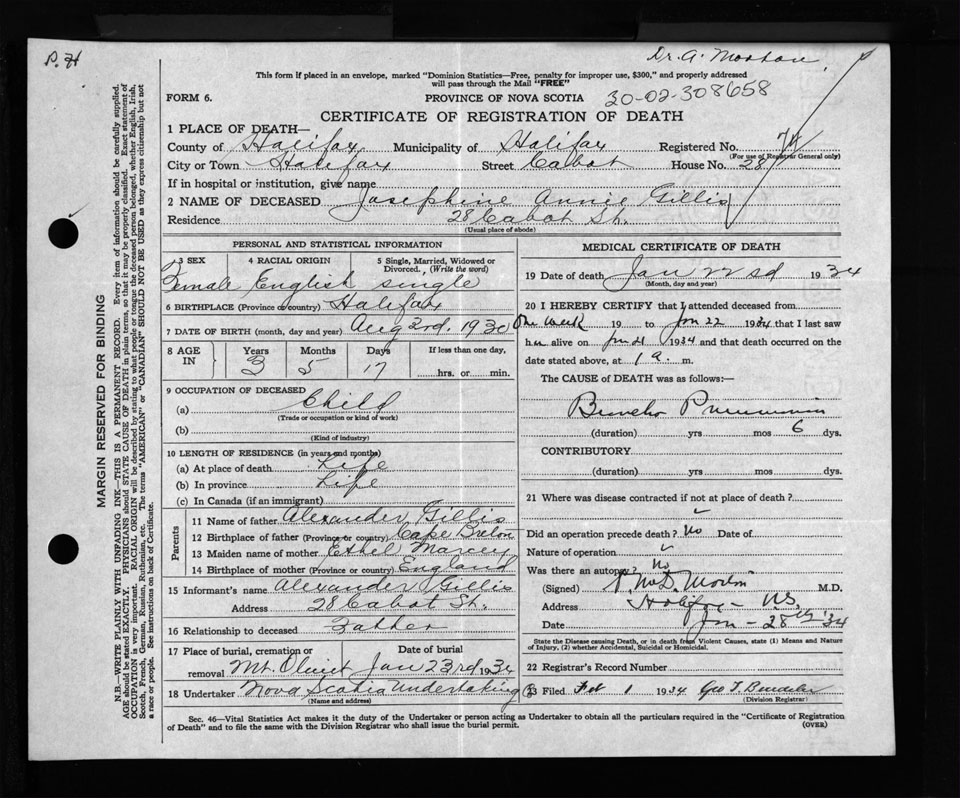 P. H
Dr. A. Morton
This form if placed in an envelope, marked "Dominion Statistics—Free, penalty for improper use, $300," and properly addressed
will pass through the Mail "FREE"
FORM 6.
PROVINCE OF NOVA SCOTIA
30-02-308658
CERTIFICATE OF REGISTRATION OF DEATH
1 PLACE OF DEATH—
County of Halifax Municipality of Halifax Registered No. 74
(For use of Registrar General only)
City or Town Halifax Street Cabot House No. 28
If in hospital or institution, give name
2 NAME OF DECEASED Josephine Annie Gillis
Residence 28 Cabot St.
(Usual place of abode)
PERSONAL AND STATISTICAL INFORMATION
3 SEX 4 RACIAL ORIGIN 5 Single, Married, Widowed or Divorced, (Write the word)
Female English single
6 BIRTHPLACE (Province or country) Halifax
7 DATE OF BIRTH (month, day and year) Aug 3rd. 1930
8 AGE IN Years Months Days If less than one day,
3 5 17 hrs. or min.
9 OCCUPATION OF DECEASED
(a) Child
(Trade or occupation or kind of work)
(b)
(Kind of industry)
10 LENGTH OF RESIDENCE (in years and months)
(a) At place of death Life
(b) In province Life
(c) In Canada (if an immigrant)
Parents
11 Name of father Alexander Gillis
12 Birthplace of father (Province or country) Cape Breton
13 Maiden name of mother Ethel
14 Birthplace of mother (Province or country) England
15 Informant's name Alexander Gillis
Address 28 Cabot St.
16 Relationship to deceased Father
17 Place of burial, cremation or removal Date of burial
Mt. Olivet Jan 23rd 1934
18 Undertaker Nova Scotia Undertaking Co
(Name and address)
MEDICAL CERTIFICATE OF DEATH
19 Date of death Jan 22sd 1934
(Month, day and year)
20 I HEREBY CERTIFY that I attended deceased from
One week 19 to Jan 22 1934 that I last saw
her alive on Jan 21 1934 and that death occurred on the
date stated above, at 1 a. m.
The CAUSE of DEATH was as follows:—
Broncho Pneumonia
(duration) yrs mos 6 dys.
CONTRIBUTORY
(duration) yrs mos dys.
21 Where was disease contracted if not at place of death?
Did an operation precede death? No Date of
Nature of operation
Was there an autopsy? No
(Signed) M.D.
Address Halifax - N.S.
Date Jan - 28th '34
State the Disease causing Death, or in death from Violent Causes, state (1) Means and Nature
of Injury, (2) whether Accidental, Suicidal or Homicidal.
22 Registrar's Record Number
23 Filed Feb 1 1934 Geo T.
(Division Registrar)
Sec. 46—Vital Statistics Act makes it the duty of the Undertaker or person acting as Undertaker to obtain all the particulars required in the "Certificate of Registration
of Death" and to file the same with the Division Registrar who shall issue the burial permit. (OVER)
MARGIN RESERVED FOR BINDING
N.B.—WRITE PLAINLY WITH UNFADING INK—THIS IS A PERMANENT RECORD. Every item of information should be carefully supplied.
AGE should be stated EXACTLY. PHYSICIANS should STATE CAUSE OF DEATH in plain terms, so that it may be properly classified. Exact statement of
OCCUPATION is very important. RACIAL ORIGIN will be described by stating to what people or tongue the deceased person belonged, whether English, Irish,
Scotch, French, German, Russian, Ruthenian, etc. The terms "AMERICAN" or "CANADIAN" SHOULD NOT BE USED as they express citizenship but not
a race or people. See instructions on back of Certificate.